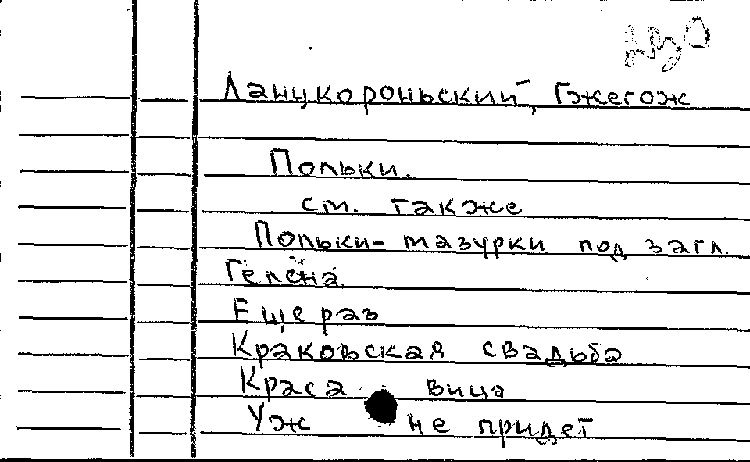 Ланцкороньский, Гжегож
Польки.
см. также
Польки-мазурки под загл.
Гелена
Еще раз
Краковская свадьба
Краса вица
Уж не придет